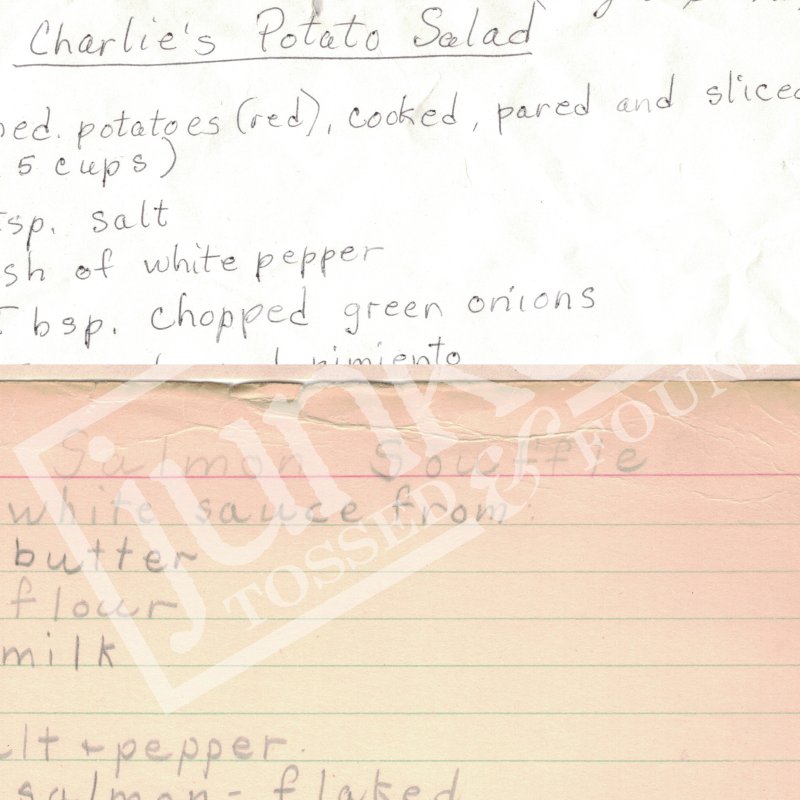 Charlie's Potato Salad
ed. potatoes (red), cooked, pared and sliced
5 cups)
tsp. salt
sh of white pepper
Tbsp. chopped green onions
pimiento
Salmon Souffle
white sauce from:
butter
flour
milk
lt + pepper.
salmon - flaked
junk
TOSSED & FOUND